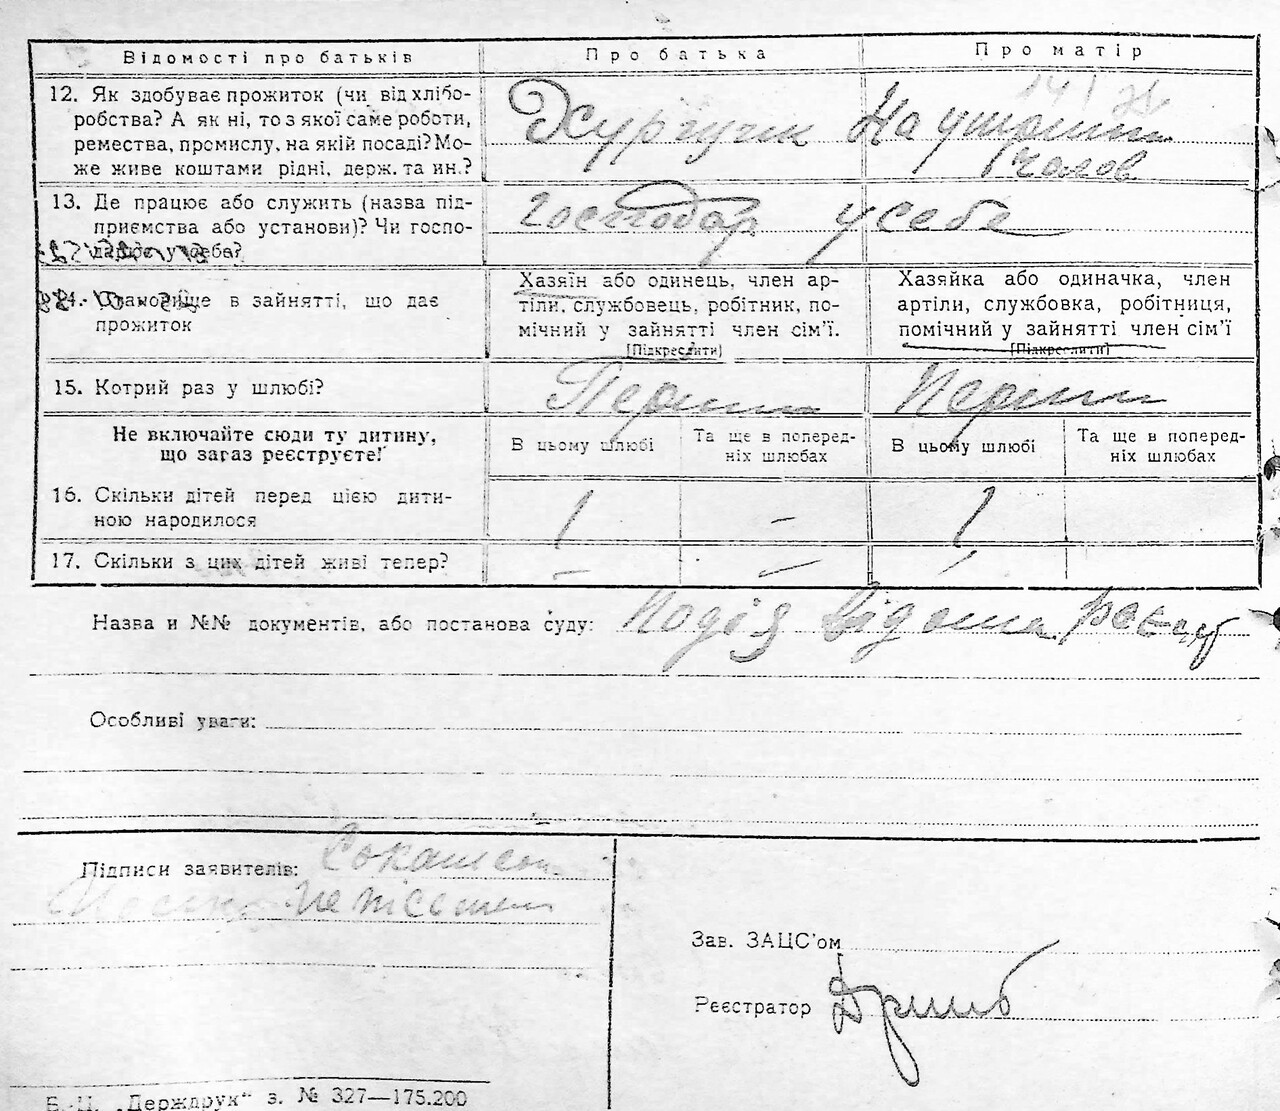 Відомості про батьків
Про батька
Про матір
12. Як здобуває прожиток (чи від хлібо-
робства? А як ні, то з якої саме роботи,
ремества, промислу, на якій посаді? Мо-
же живе коштами рідні, держ. та ин.?
На утрим
чолов
13. Де працює або служить (назва під-
приємства або установи)? Чи госпо-
дарює у себе?
Господар у себе
14. Становище в зайнятті, що дає
прожиток
Хазяїн або одинець, член ар-
тіли, службовець, робітник, по-
мічний у зайнятті член сім'ї.
[Підкреслити]
Хазяйка або одиначка, член
артіли, службовка, робітниця,
помічний у зайнятті член сім'ї
[Підкреслити]
15. Котрий раз у шлюбі?
Перший
Перший
Не включайте сюди ту дитину,
що загаз реєструєте!
В цьому шлюбі
Та ще в поперед-
ніх шлюбах
В цьому шлюбі
Та ще в поперед-
ніх шлюбах
16. Скільки дітей перед цією дити-
ною народилося
1 – 1
17. Скільки з цих дітей живі тепер?
– –
Назва и №№ документів, або постанова суду: Подія відома
Особливі уваги:
Підписи заявителів:
неписьмен
Зав. ЗАЦС'ом
Реєстратор
Б.-Ц. „Держдрук" з. № 327—175.200